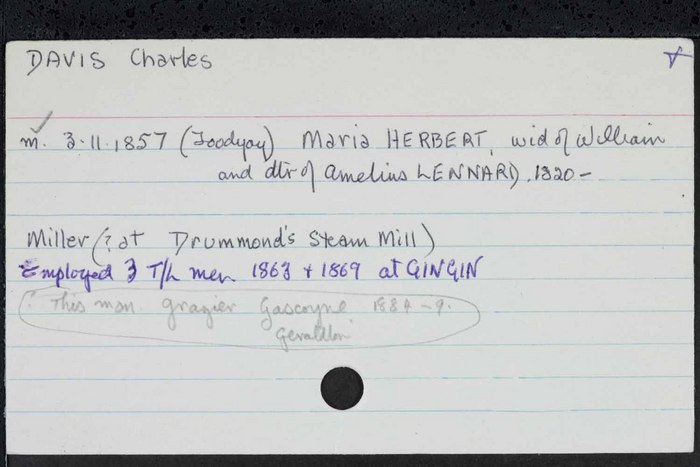 DAVIS Charles
m. 3.11.1857 (Toodyay) Maria HERBERT, wid of William
and dtr of Amelius LENNARD. 1820 -
Miller (? at Drummond's Steam Mill)
Employed 3 T/L men 1863 + 1869 at GINGIN
? This man grazier Gascoyne 1884 - 9.
Geraldton